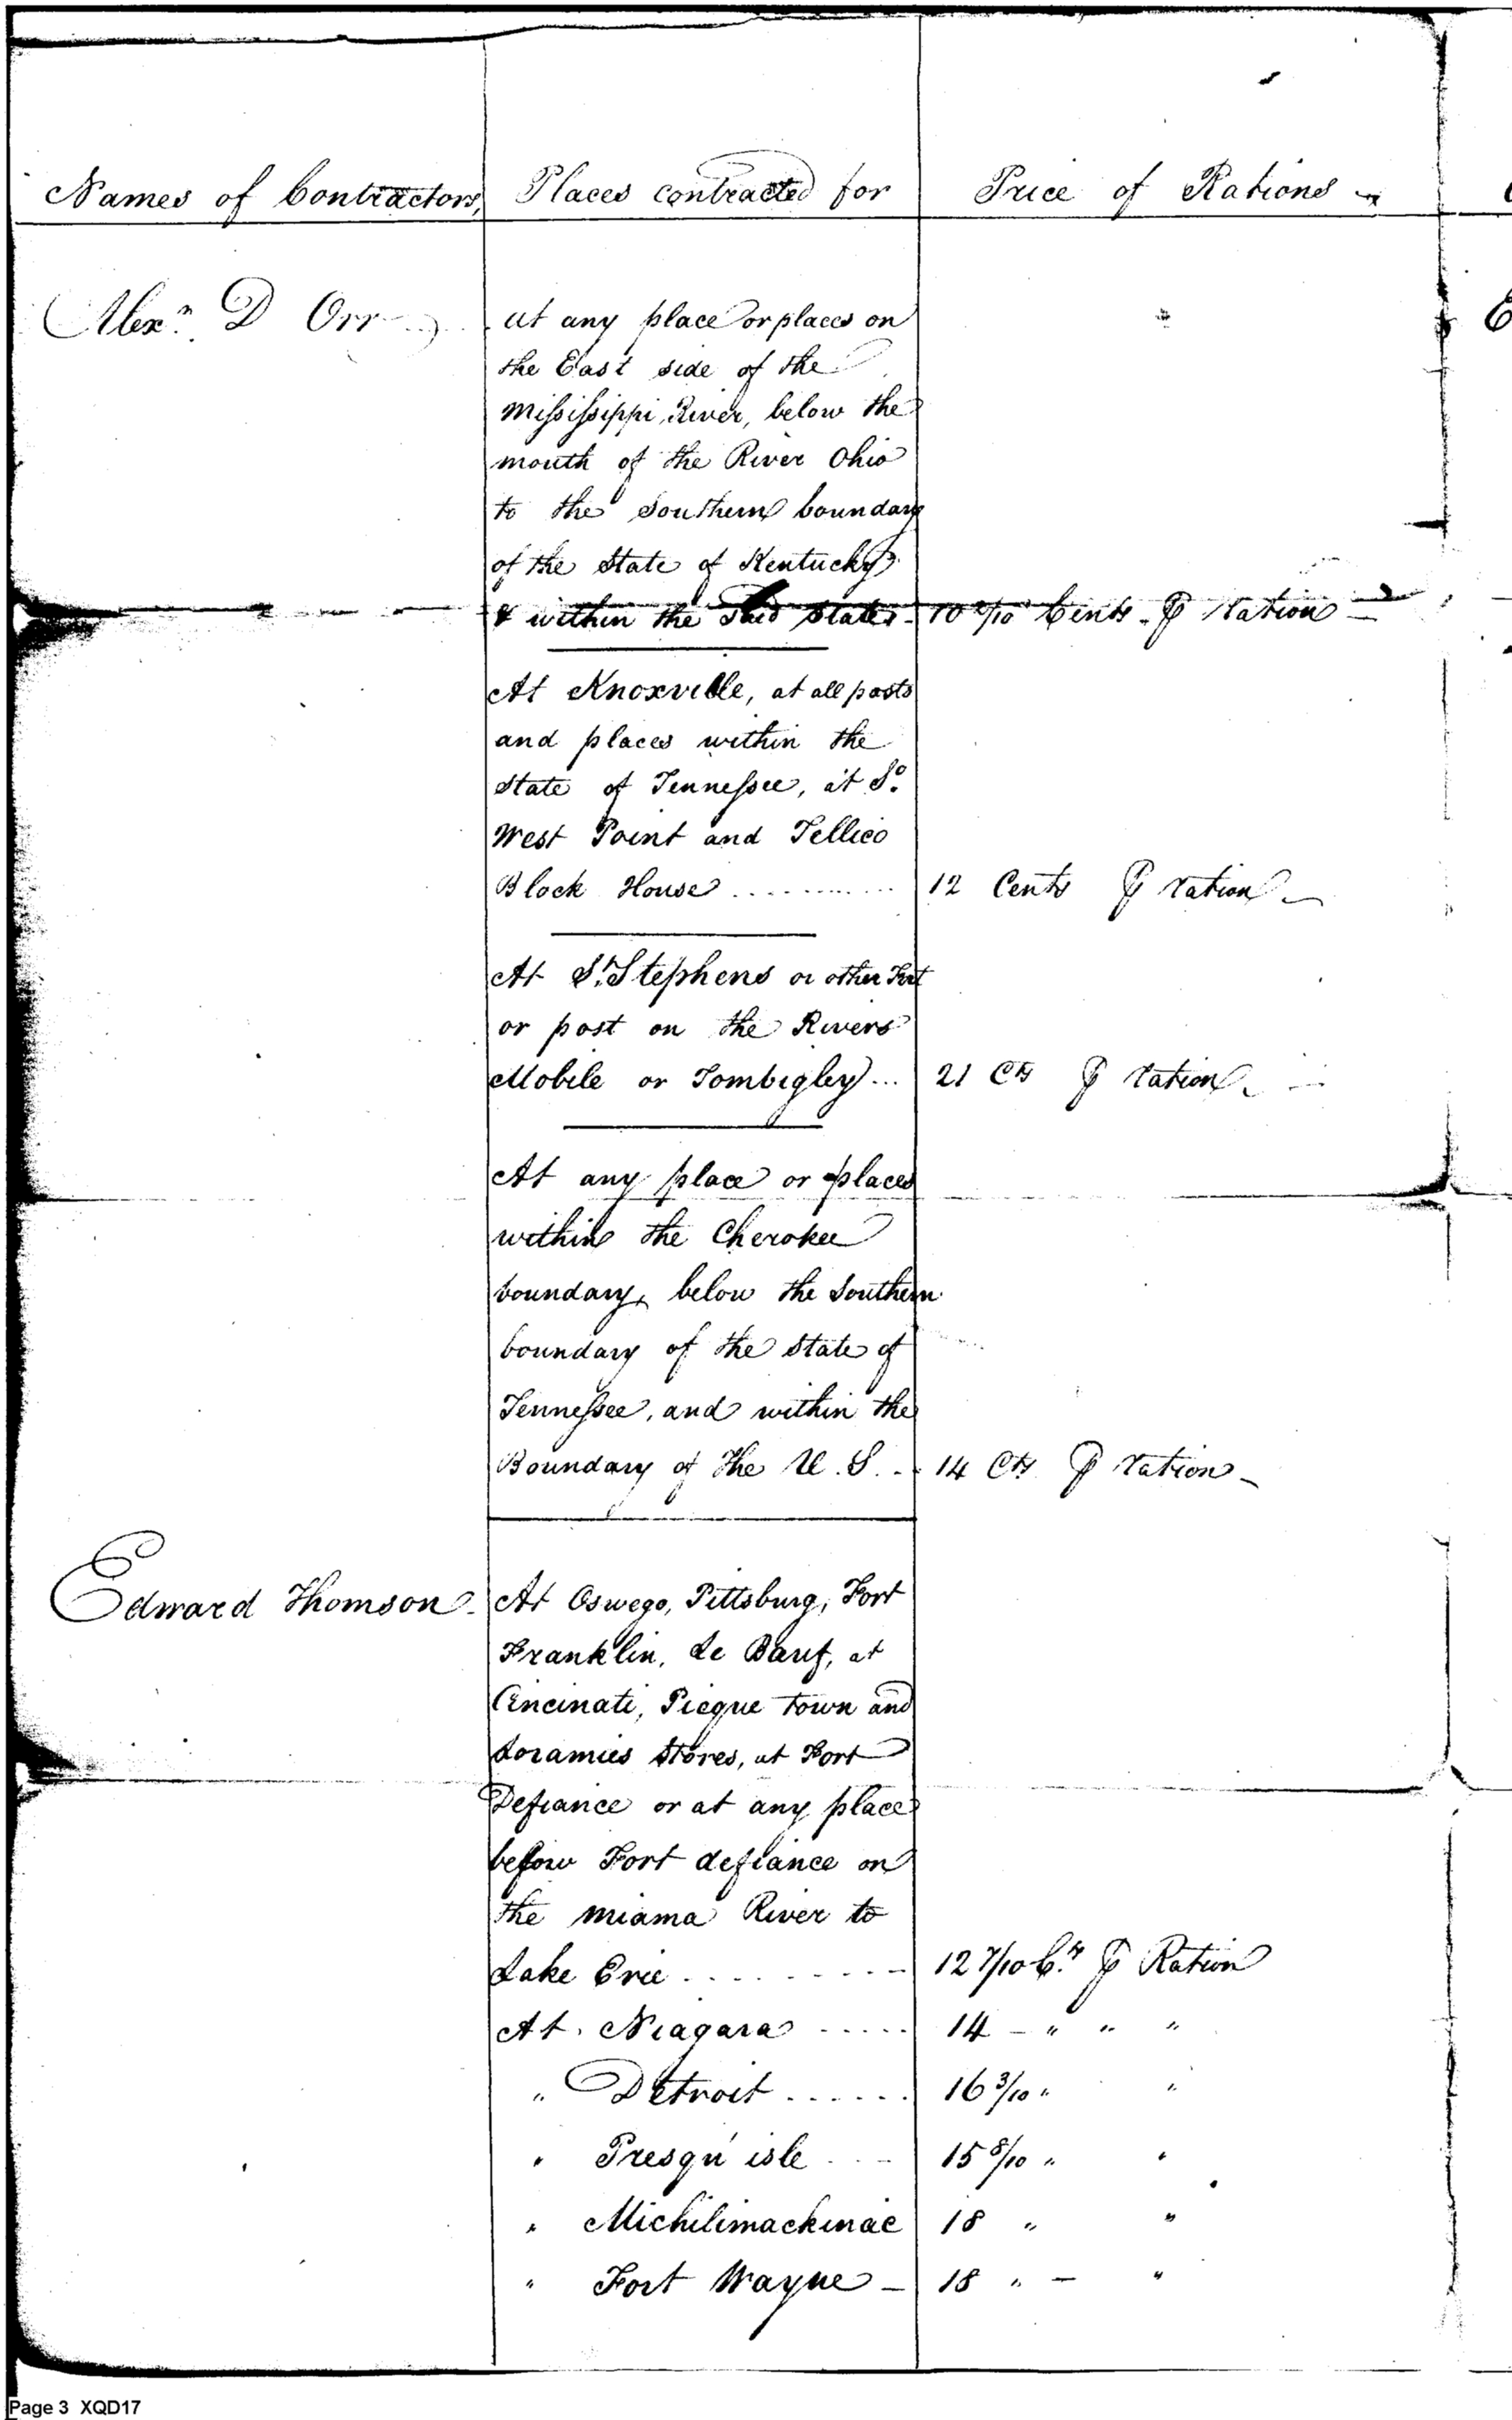 Names of Contractors, Places contracted for Price of Rations
Alexr. D Orr at any place or places on
the East side of the
Mississippi River, below the
mouth of the River Ohio
to the Southern boundary
of the State of Kentucky
& within the said State 10 2/10 Cents ⅌ ration
At Knoxville, at all posts
and places within the
State of Tennessee, at So.
West Point and Tellico
Block House ........... 12 Cents ⅌ ration
At St. Stephens or other Fort
or post on the Rivers
Mobile or Tombigby ... 21 Cts ⅌ ration
At any place or places
within the Cherokee
boundary, below the Southern
boundary of the State of
Tennessee, and within the
Boundary of the U. S. .. 14 Cts ⅌ ration
Edward Thomson At Oswego, Pittsburg, Fort
Franklin, Le Bauf, at
Cincinati, Picque town and
Loramies Stores, at Fort
Defiance or at any place
below Fort defiance on
the miama River to
Lake Erie ......... 12 7/10 Cts ⅌ Ration
At Niagara ..... 14 - " " "
" Detroit ...... 16 3/10 " "
" Presqu' isle ... 15 8/10 " "
" Michilimackinac 18 " "
" Fort Wayne - 18 " - "
Page 3 XQD17